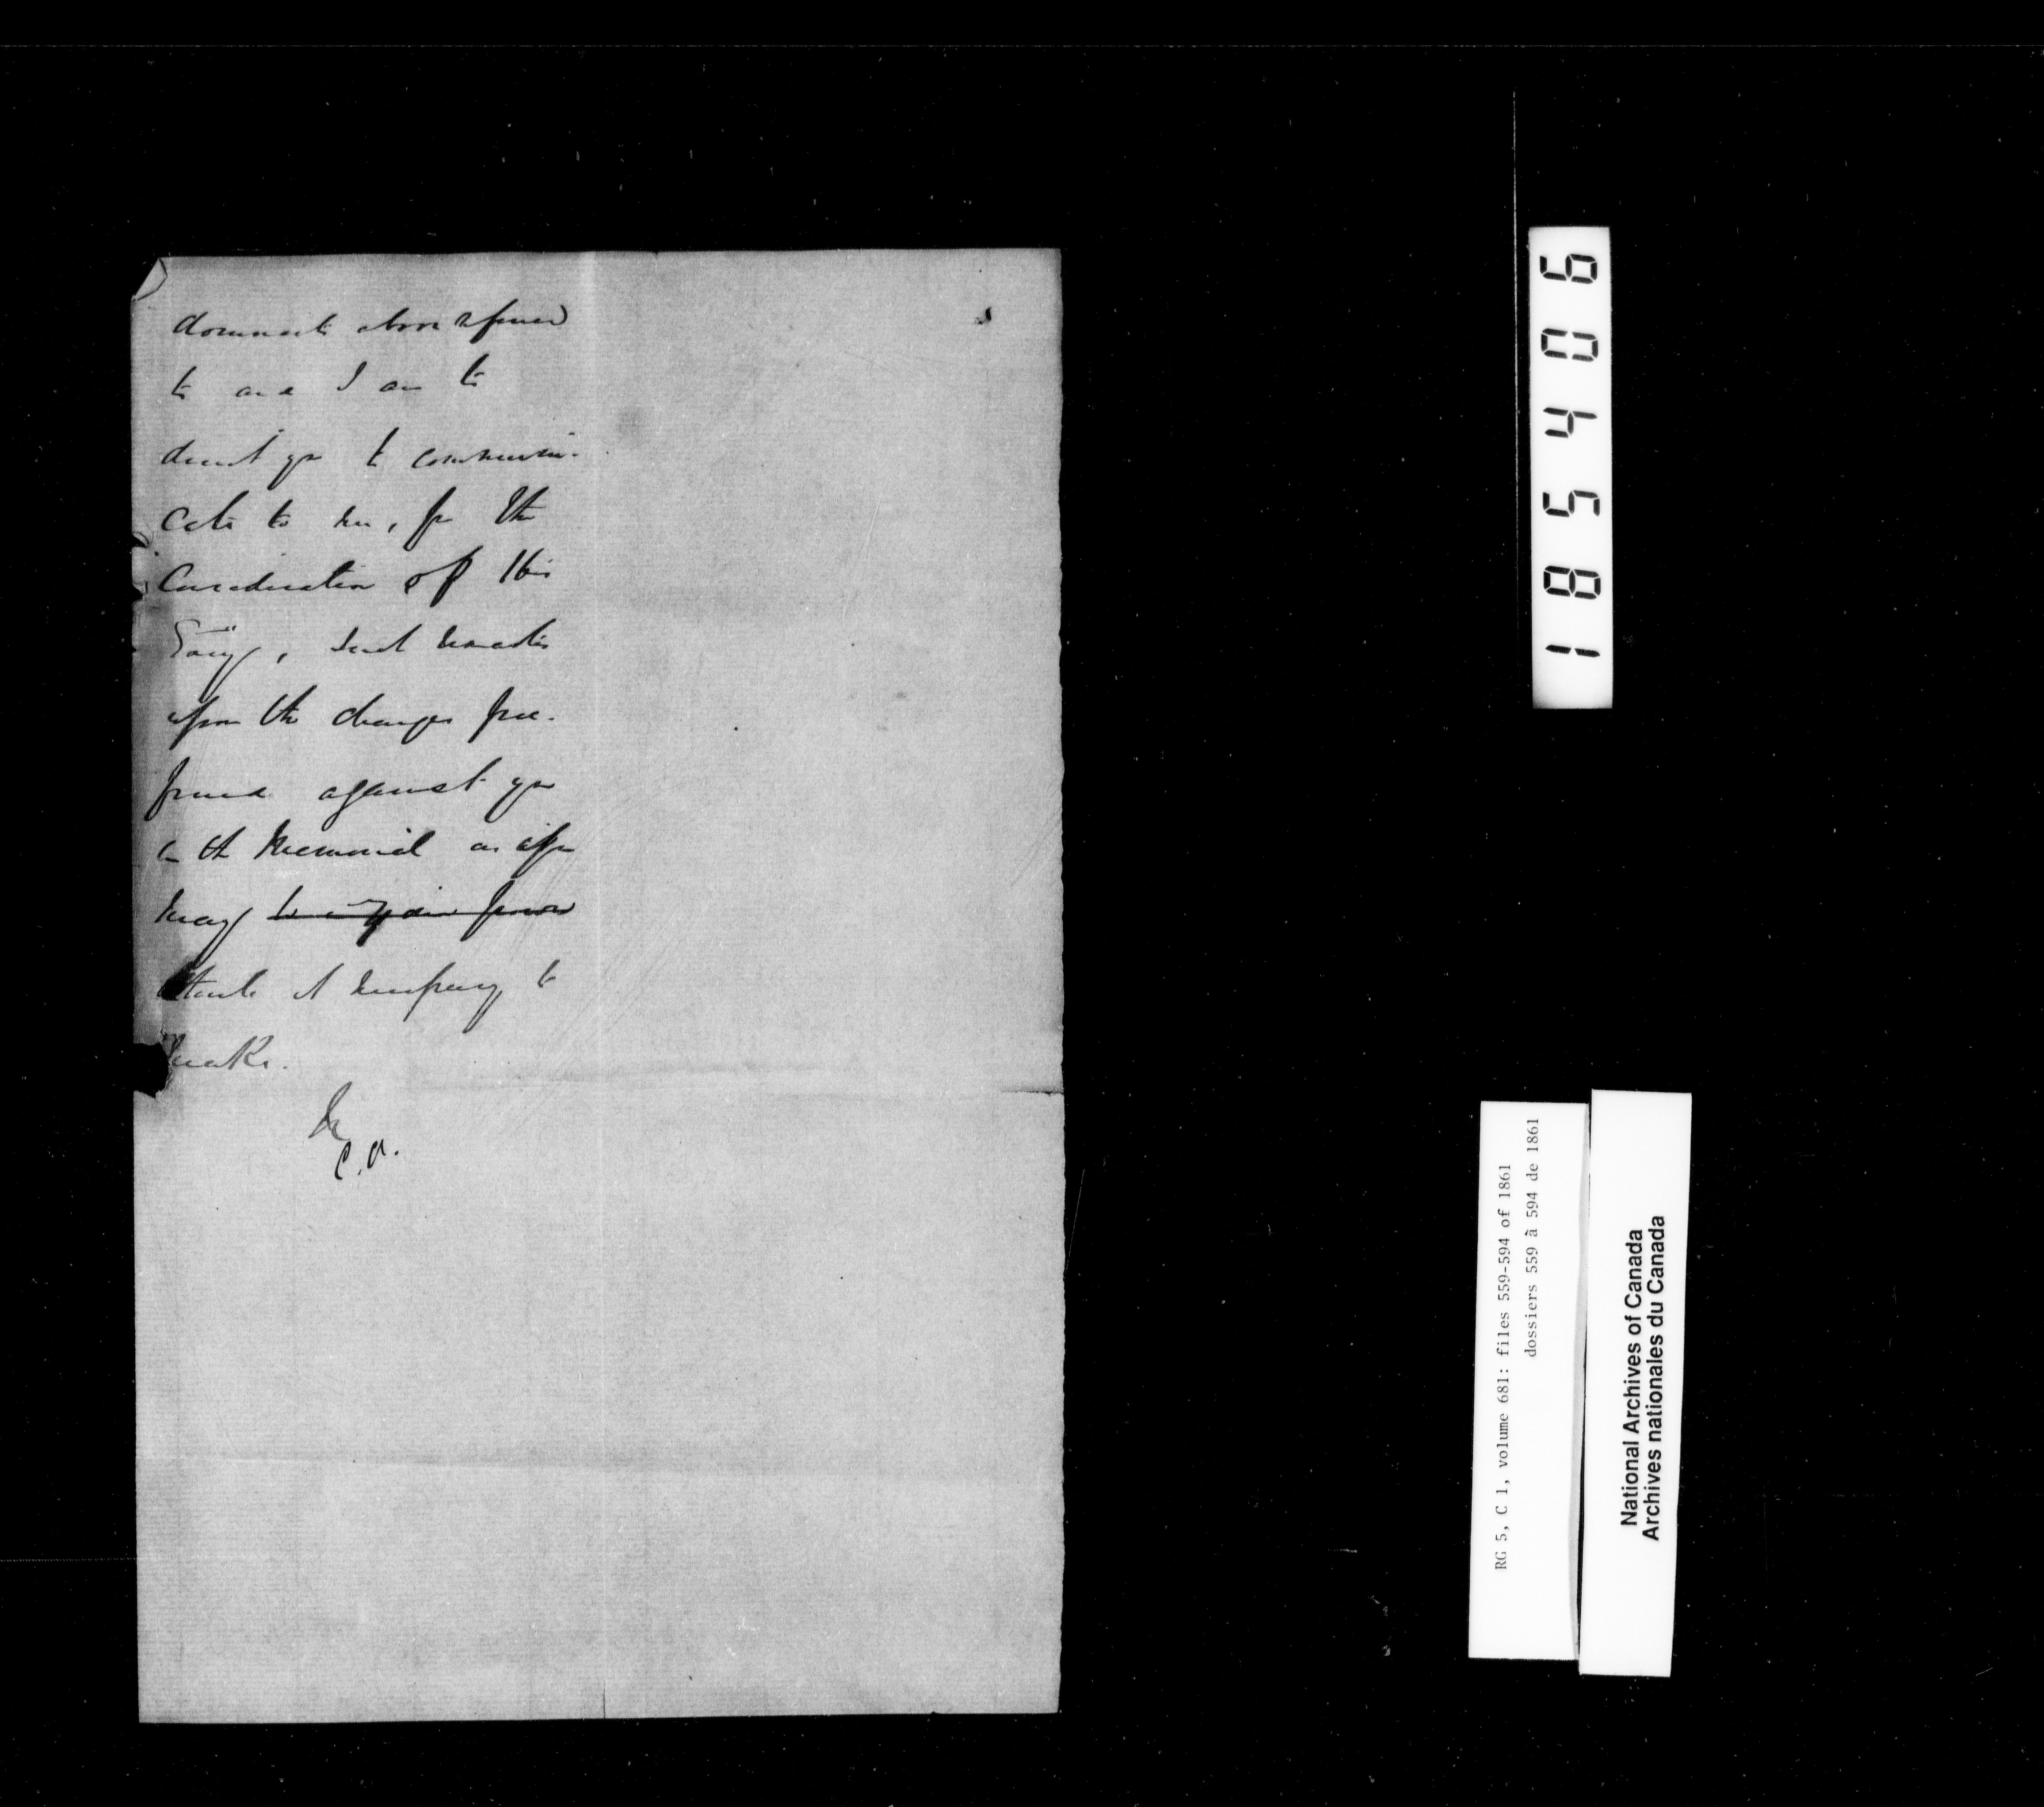 documents above referred
to and I am to
direct you to communi-
cate to me, for the
Consideration of His
Excy, such remarks
upon the charges pre-
ferred against you
in the Memorial as
may
it necessary to
make.
C.A.
185406
RG 5, C 1, volume 681: files 559-594 of 1861
dossiers 559 à 594 de 1861
National Archives of Canada
Archives nationales du Canada